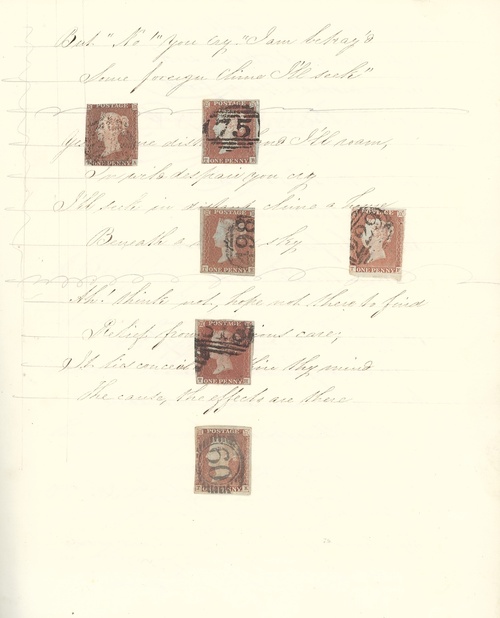 But "No!" you cry "I am betray'd
Some foreign clime I'll seek"
POSTAGE
ONE PENNY
POSTAGE
75
ONE PENNY
I'll roam,
In wild despair you cry
I'll seek in distant clime a home
POSTAGE
498
ONE PENNY
POSTAGE
ONE PENNY
Beneath a sky,
Ah! think not, hope not there to find
POSTAGE
ONE PENNY
Relief from care,
It lies within thy mind
The cause, the effects are there
POSTAGE
60